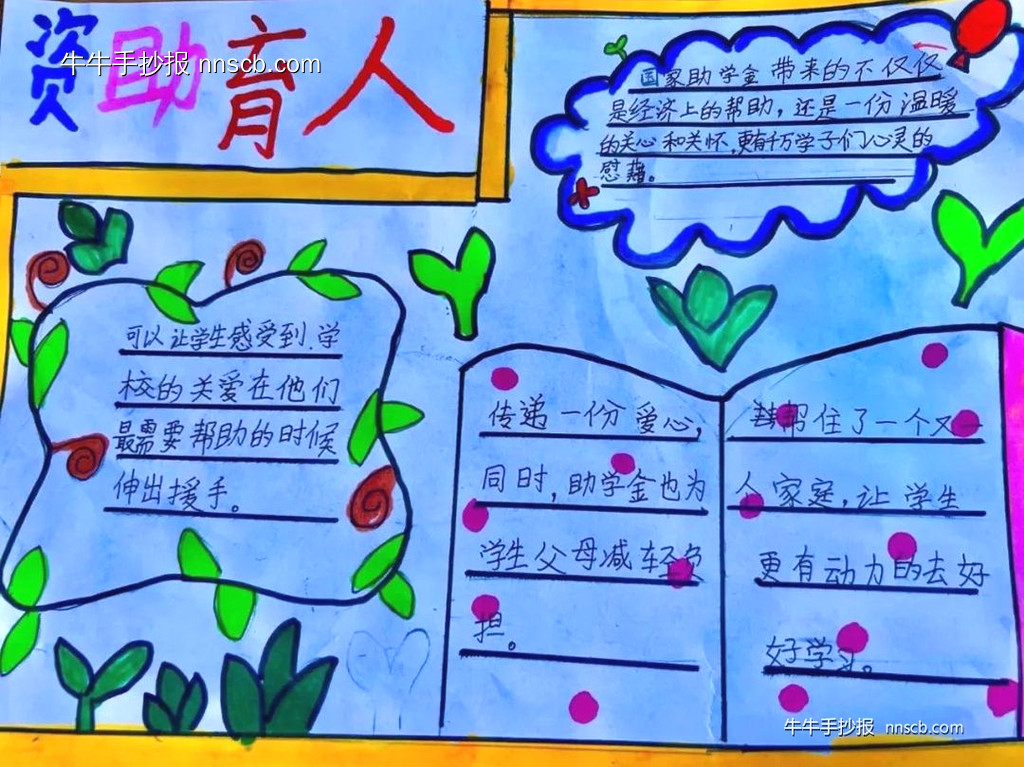 资助育人
牛牛手抄报 nnscb.com
国家助学金带来的不仅仅
是经济上的帮助，还是一份温暖
的关心和关怀，更有千万学子们心灵的
慰藉。
可以让学生感受到.学
校的关爱在他们
最需要帮助的时候
伸出援手。
传递一份爱心，
同时，助学金也为
学生父母减轻负
担。
帮住了一个又一
个家庭，让学生
更有动力的去好
好学习。
牛牛手抄报 nnscb.com